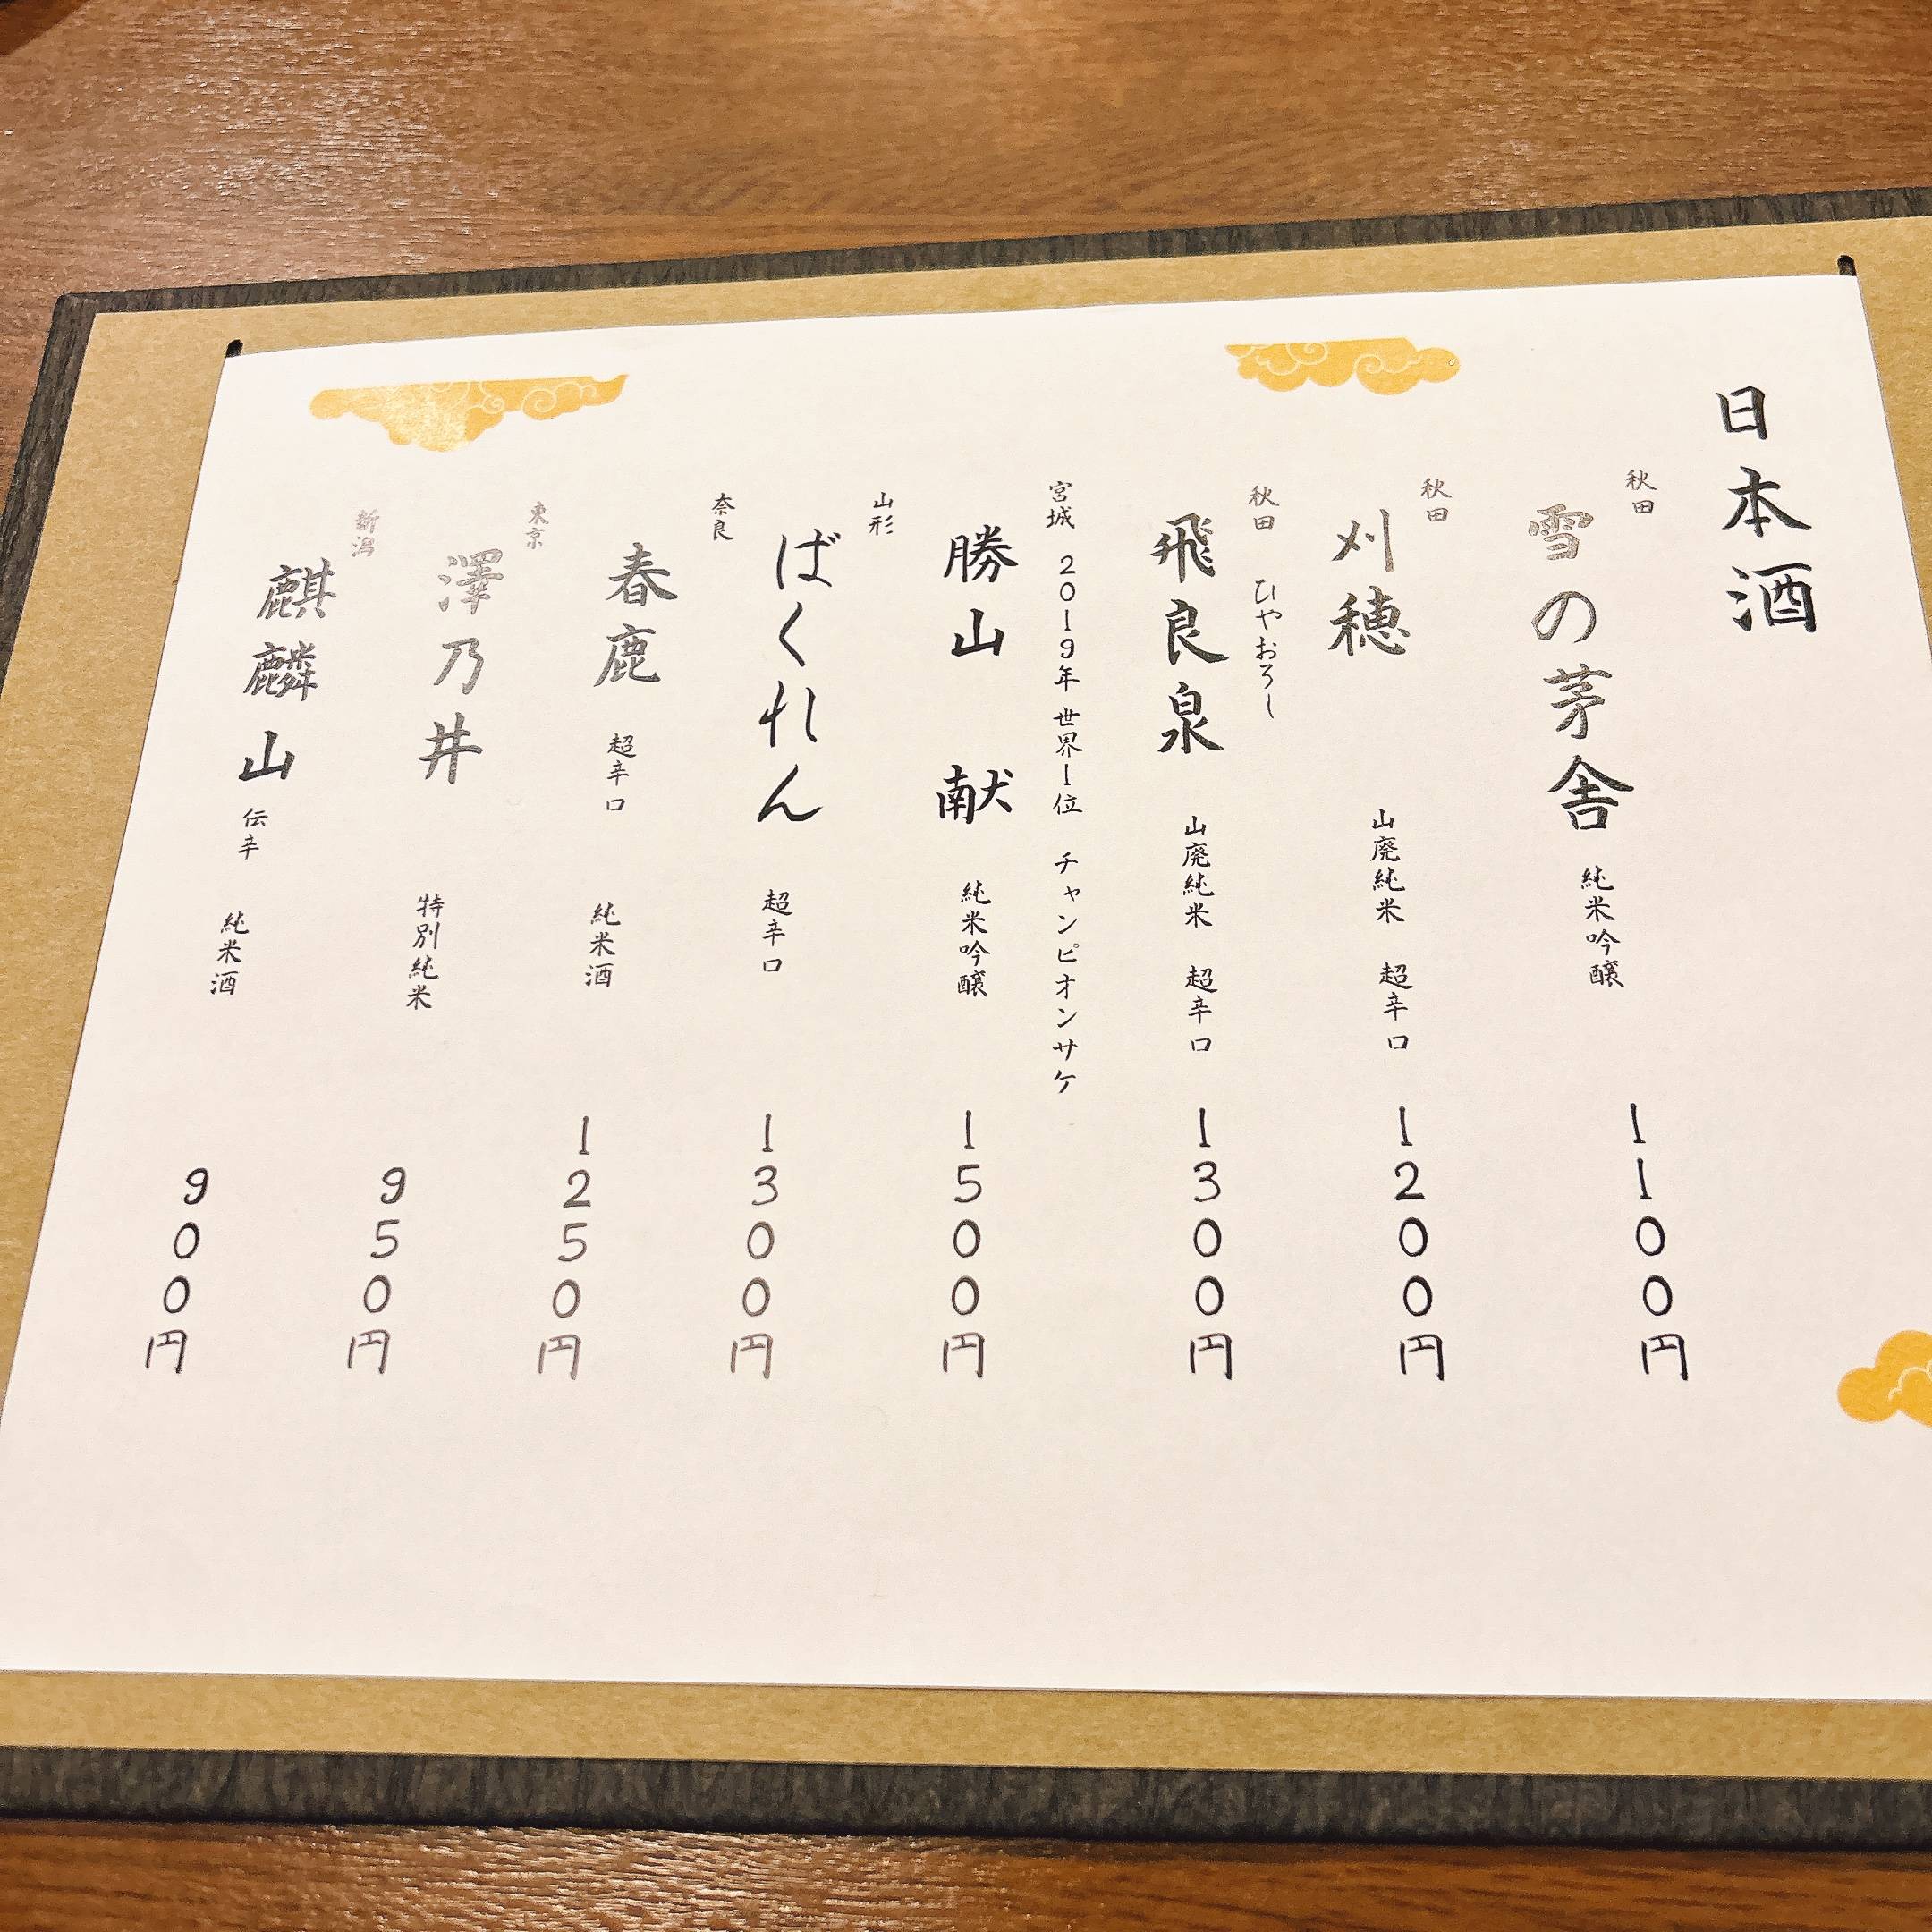 日本酒
秋田
雪の茅舎 純米吟醸 1100円
秋田
刈穂 山廃純米 超辛口 1200円
秋田 ひやおろし
飛良泉 山廃純米 超辛口 1300円
宮城 2019年 世界1位 チャンピオンサケ
勝山 献 純米吟醸 1500円
山形
ばくれん 超辛口 1300円
奈良
春鹿 超辛口 純米酒 1250円
東京
澤乃井 特別純米 950円
新潟
麒麟山 伝辛 純米酒 900円